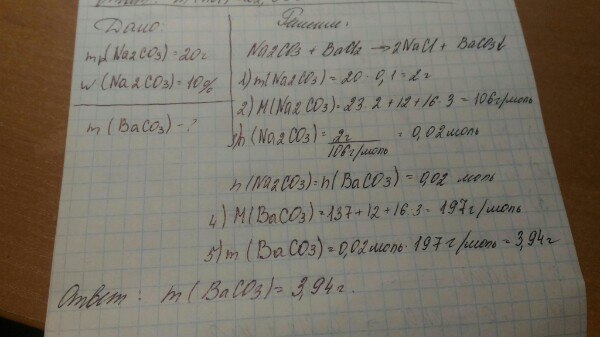 Дано
mр(Na2CO3)=20г
w(Na2CO3)=10%
m(BaCO3)-?
Решение.
Na2CO3 + BaCl2 → 2NaCl + BaCO3↓
1) m(Na2CO3)=20·0,1=2г
2) M(Na2CO3)=23·2+12+16·3=106г/моль
3) n(Na2CO3)=2г/106г/моль = 0,02моль
n(Na2CO3)=n(BaCO3)=0,02 моль
4) M(BaCO3)=137+12+16·3=197г/моль
5) m(BaCO3)=0,02моль·197г/моль=3,94г
Ответ: m(BaCO3)=3,94г.